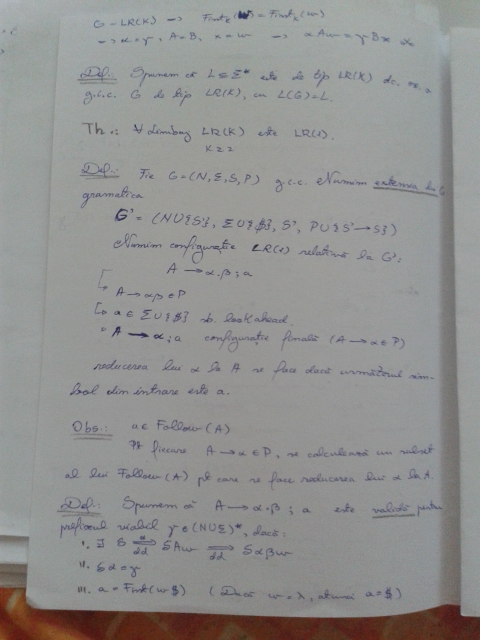 G - LR(K) → First_k(w) = First_k(w)
→ α=γ, A=B, x=w → αAw = γBx
Def.: Spunem că L⊆Σ* este de tip LR(K) dc.
g.i.c. G de tip LR(K), cu L(G)=L.
Th.: ∀ Limbaj LR(K) este LR(1).
K≥2
Def.: Fie G=(N,Σ,S,P) g.i.c. Numim extensia lui G
gramatica
G' = (N∪{S'}, Σ∪{$}, S', P∪{S'→S})
Numim configurație LR(1) relativă la G':
A → α.β ; a
A → αβ ∈ P
a ∈ Σ∪{$} s. lookahead
A → α. ; a configurație finală (A → α ∈ P)
reducerea lui α la A se face dacă următorul sim-
bol din intrare este a.
Obs.: a ∈ Follow(A)
Pt fiecare A → α ∈ P, se calculează un subset
al lui Follow(A) pt care se face reducerea lui α la A.
Def.: Spunem că A → α.β ; a este validă pentru
prefixul viabil γ ∈ (N∪Σ)*, dacă:
i. ∃ S ⇒*dd δAw ⇒dd δαβw
ii. δα=γ
iii. a = First(w$) (Dacă w=λ, atunci a=$)